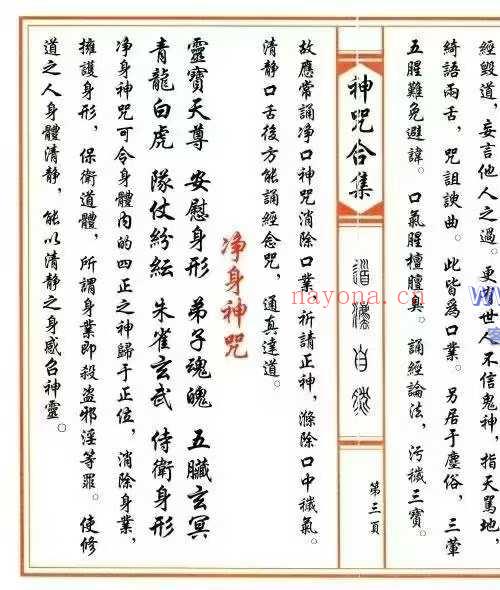 經毀道，妄言他人之過。更有世人不信鬼神，指天罵地，
綺語兩舌，咒詛諛曲。此皆爲口業。另居于塵俗，三葷
五腥難免避諱。口氣腥檀膻臭。誦經論法，污穢三寶。
神咒合集
道濟自流
第三頁
故應常誦净口神咒消除口業，祈請正神，滌除口中穢氣。
清静口舌後方能誦經念咒，通真達道。
净身神咒
靈寶天尊 安慰身形 弟子魂魄 五臟玄冥
青龍白虎 隊仗紛紜 朱雀玄武 侍衛身形
净身神咒可令身體内的四正之神歸于正位，消除身業，
擁護身形，保衛道體，所謂身業即殺盗邪淫等罪。使修
道之人身體清静，能以清静之身感召神靈。
nayona.cn